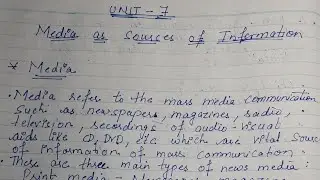 UNIT-7
Media as Sources of Information
* Media
• Media refer to the mass media communication
such as newspapers, magazines, radio,
television, recordings of audio-visual
aids like CD, DVD, etc which are vital source
of information of mass communication.
• There are three main types of news media:
Print media